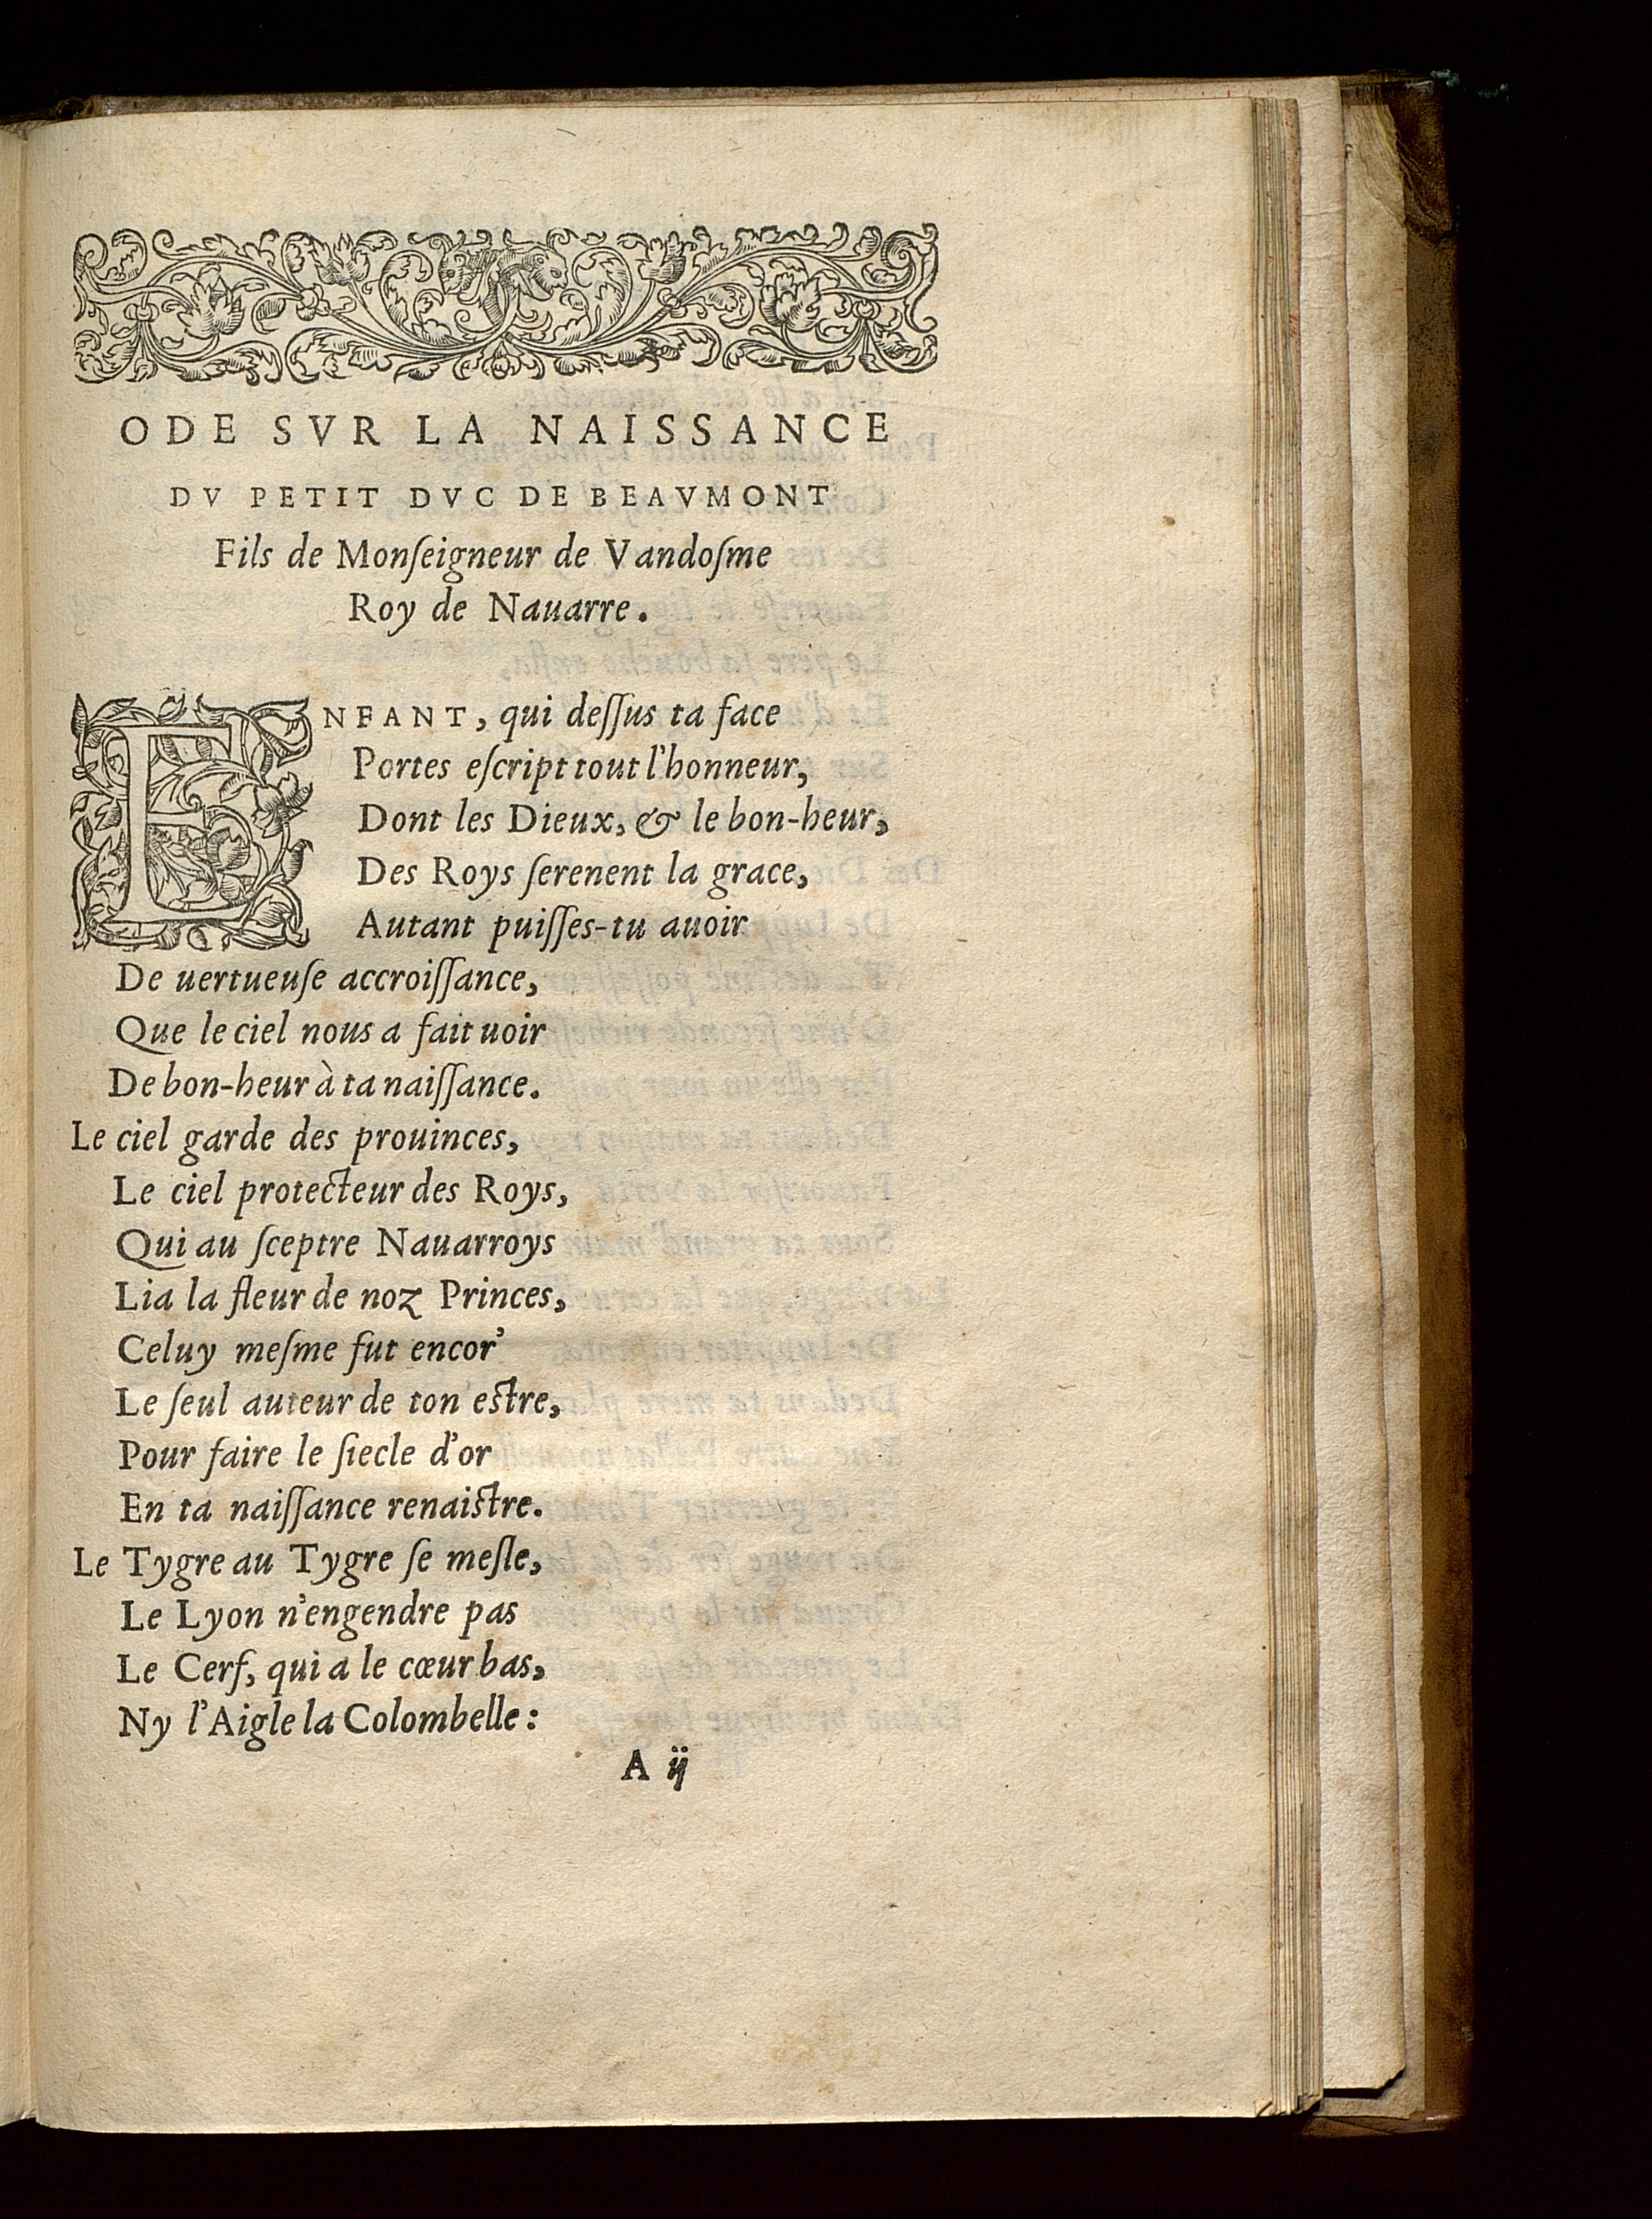 ODE SVR LA NAISSANCE
DV PETIT DVC DE BEAVMONT
Fils de Monſeigneur de Vandoſme
Roy de Nauarre.
ENFANT, qui deſſus ta face
Portes eſcript tout l'honneur,
Dont les Dieux, & le bon-heur,
Des Roys ſerenent la grace,
Autant puiſſes-tu auoir
De uertueuſe accroiſſance,
Que le ciel nous a fait uoir
De bon-heur à ta naiſſance.
Le ciel garde des prouinces,
Le ciel protecteur des Roys,
Qui au ſceptre Nauarroys
Lia la fleur de noz Princes,
Celuy meſme fut encor'
Le ſeul auteur de ton eſtre,
Pour faire le ſiecle d'or
En ta naiſſance renaiſtre.
Le Tygre au Tygre ſe meſle,
Le Lyon n'engendre pas
Le Cerf, qui a le cœur bas,
Ny l'Aigle la Colombelle:
A ij